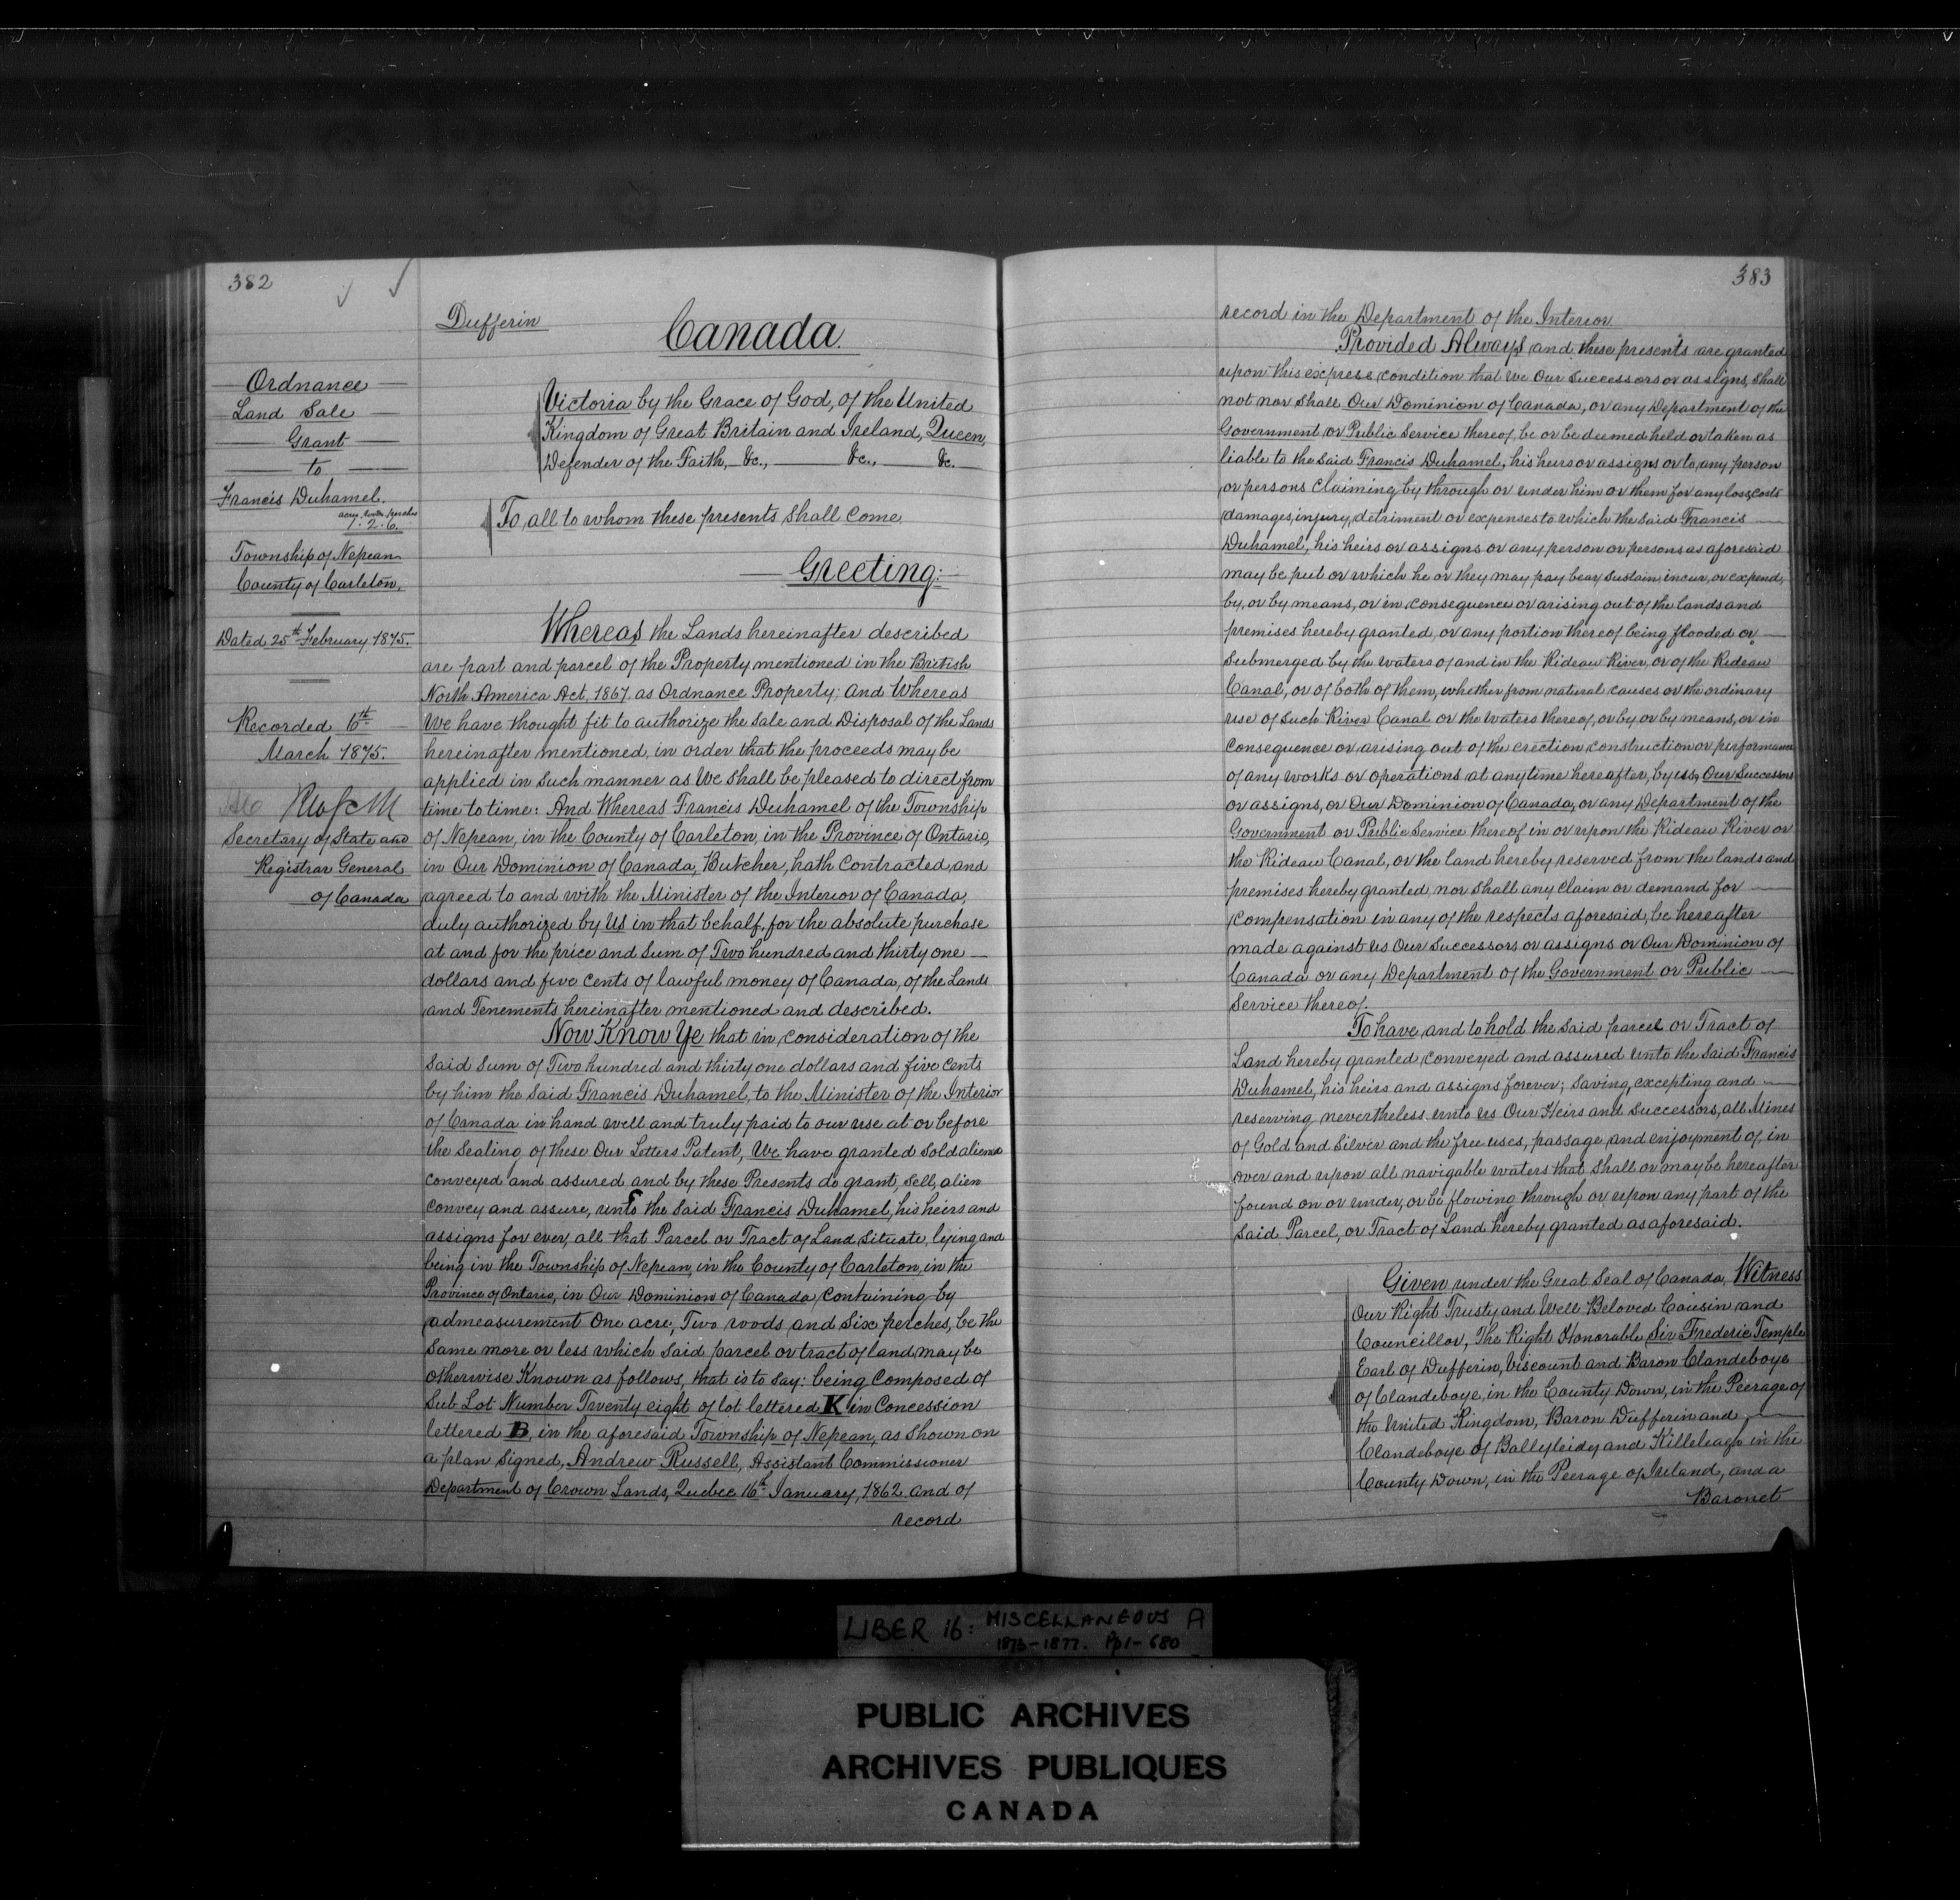 382
Dufferin
Canada.
Ordnance
Land Sale
Grant
to
Francis Duhamel.
acres roods perches
1. 2. 6.
Township of Nepean
County of Carleton,
Dated 25th February, 1875.
Recorded 16th
March 1875.
Secretary of State and
Registrar General
of Canada
Victoria by the Grace of God, of the United
Kingdom of Great Britain and Ireland, Queen,
Defender of the Faith, &c., &c., &c.
To all to whom these presents shall come
Greeting:
Whereas the Lands hereinafter described
are part and parcel of the Property mentioned in the British
North America Act, 1867, as Ordnance Property; and Whereas
We have thought fit to authorize the sale and Disposal of the Lands
hereinafter mentioned, in order that the proceeds may be
applied in such manner as We shall be pleased to direct from
time to time: And Whereas Francis Duhamel of the Township
of Nepean, in the County of Carleton, in the Province of Ontario,
in Our Dominion of Canada, Butcher, hath contracted, and
agreed to and with the Minister of the Interior of Canada,
duly authorized by Us in that behalf, for the absolute purchase
at and for the price and sum of Two hundred and thirty one
dollars and five cents of lawful money of Canada, of the Lands
and Tenements hereinafter mentioned and described.
Now Know Ye that in consideration of the
said sum of Two hundred and thirty one dollars and five cents
by him the said Francis Duhamel, to the Minister of the Interior
of Canada in hand well and truly paid to our use at or before
the sealing of these Our Letters Patent, We have granted sold aliened
conveyed and assured and by these Presents do grant, sell, alien
convey and assure, unto the said Francis Duhamel, his heirs and
assigns for ever, all that Parcel or Tract of Land, situate, lying and
being in the Township of Nepean, in the County of Carleton, in the
Province of Ontario, in Our Dominion of Canada, containing by
admeasurement One acre, Two roods and Six perches, be the
same more or less which said parcel or tract of land, may be
otherwise Known as follows, that is to say: being Composed of
Sub Lot Number Twenty eight of lot lettered K in Concession
lettered B, in the aforesaid Township of Nepean, as shown on
a plan signed, Andrew Russell, Assistant Commissioner
Department of Crown Lands, Quebec 16th January, 1862. and of
record
383
record in the Department of the Interior
Provided Always and these presents are granted
upon this express condition that we Our Successors or assigns, shall
not nor shall Our Dominion of Canada, or any Department of the
Government or Public Service thereof, be or be deemed held or taken as
liable to the said Francis Duhamel, his heirs or assigns or to any person
or persons claiming by through or under him or them for any loss, costs
damages, injury, detriment or expenses to which the said Francis
Duhamel, his heirs or assigns or any person or persons as aforesaid
may be put or which he or they may pay bear sustain, incur, or expend,
by, or by means, or in consequence or arising out of the lands and
premises hereby granted, or any portion thereof being flooded or
submerged by the waters of and in the Rideau River, or of the Rideau
Canal, or of both of them, whether from natural causes or the ordinary
use of such River Canal or the waters thereof, or by or by means, or in
consequence or arising out of the erection construction or performance
of any works or operations at anytime hereafter, by us, Our Successors
or assigns, or Our Dominion of Canada, or any Department of the
Government or Public Service thereof in or upon the Rideau River or
the Rideau Canal, or the land hereby reserved from the lands and
premises hereby granted nor shall any claim or demand for
compensation in any of the respects aforesaid, be hereafter
made against us Our Successors or assigns or Our Dominion of
Canada or any Department of the Government or Public
Service thereof.
To have and to hold the said parcel or Tract of
Land hereby granted conveyed and assured unto the said Francis
Duhamel, his heirs and assigns forever; saving, excepting and
reserving nevertheless unto us Our Heirs and Successors, all Mines
of Gold and Silver and the free uses, passage and enjoyment of, in
over and upon all navigable waters that shall or may be hereafter
found on or under, or be flowing through or upon any part of the
said Parcel, or Tract of Land hereby granted as aforesaid.
Given under the Great Seal of Canada, Witness
Our Right Trusty and Well Beloved Cousin and
Councillor, The Right Honorable Sir Frederic Temple
Earl of Dufferin, Viscount and Baron Clandeboye
of Clandeboye, in the County Down, in the Peerage of
the United Kingdom, Baron Dufferin and
Clandeboye of Ballyleidy and Killeleagh in the
County Down, in the Peerage of Ireland, and a
Baronet
LIBER 16: MISCELLANEOUS A
1873-1877. Pp 1-680
PUBLIC ARCHIVES
ARCHIVES PUBLIQUES
CANADA